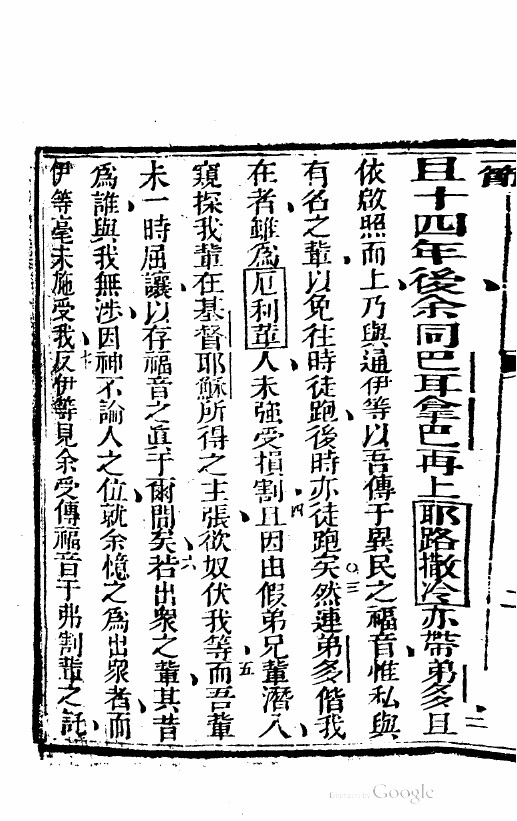 節
二
且十四年後余同巴耳拿巴再上耶路撒冷亦帶弟多且二
依啟照而上乃與通伊等以吾傳于異民之福音惟私與
有名之輩以免徃時徒跑後時亦徒跑矣然連弟多偕我三
在者雖爲厄利革人未強受損割且因由假弟兄輩潛入四五
窺探我輩在基督耶穌所得之主張欲奴伏我等而吾輩
未一時屈讓以存福音之眞于爾間矣若出衆之輩其昔六
爲誰與我無涉因神不論人之位就余憶之爲出衆者而
伊等毫未施受我反伊等見余受傳福音于弗割輩之託七
Digitized by Google